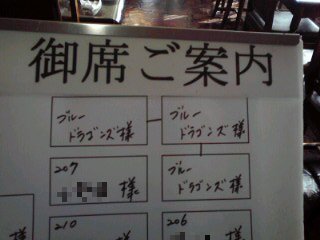 御席ご案内
ブルー
ドラゴンズ様
ブルー
ドラゴンズ様
207
様
ブルー
ドラゴンズ様
210
様
206
様